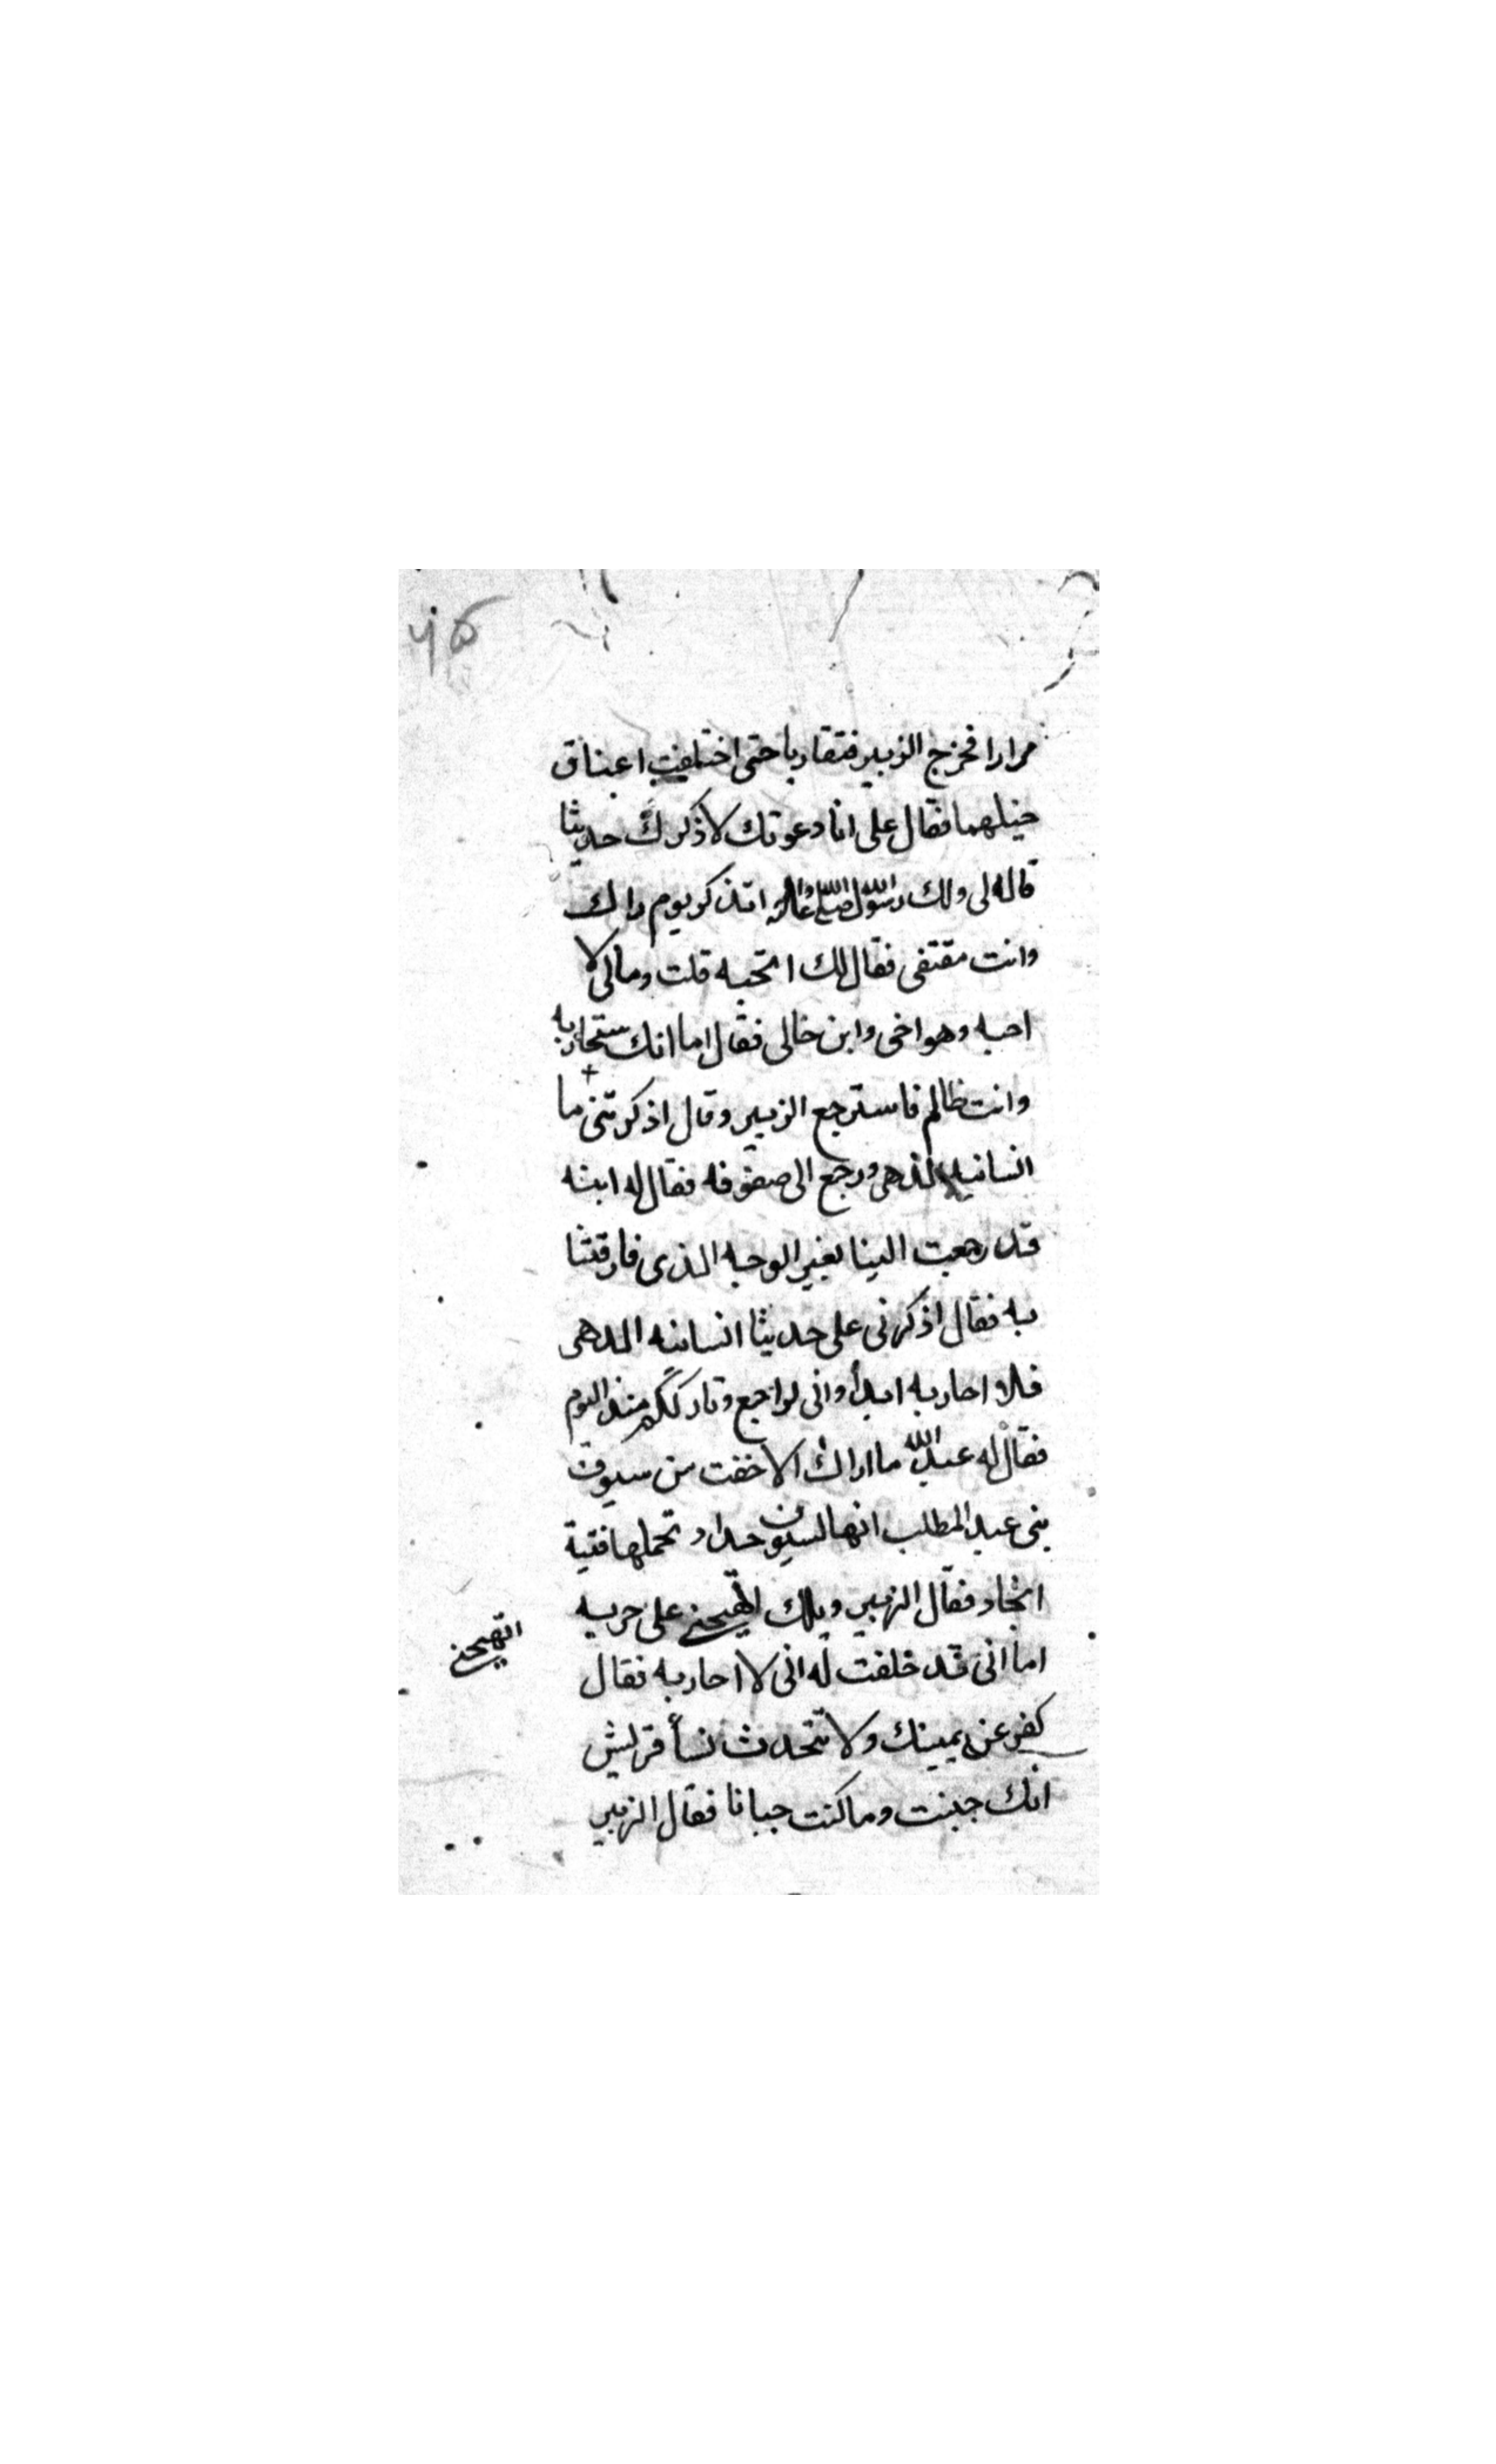 مرارا فخرج الزبير فتقاربا حتى اختلفت اعناق
خيلهما فقال علي انا دعوتك لاذكرك حديثا
قاله لي ولك رسول الله صلى الله عليه واله اتذكر يوم راك
وانت مقتفى فقال لك اتحبه قلت ومالى لا
احبه وهو اخى وابن خالى فقال اما انك ستحاربه
وانت ظالم فاسترجع الزبير وقال اذكرتنى ما
انسانيه الدهر ورجع الى صفوفه فقال له ابنه
قد رجعت الينا بغير الوجه الذى فارقتنا
به فقال اذكرنى على حديثا انسانيه الدهر
فلا احاربه ابدا وانى لراجع وتارككم منذ اليوم
فقال له عبد الله ما اراك الا خفت من سيوف
بنى عبد المطلب انها لسيوف حداد تحملها فتية
انجاد فقال الزبير ويلك اتهيجنى على حربه
اتهيجنى
اما انى قد حلفت له انى لا احاربه فقال
كفر عن يمينك ولا تتحدث نسأ قريش
انك جبنت وما كنت جبانا فقال الزبير